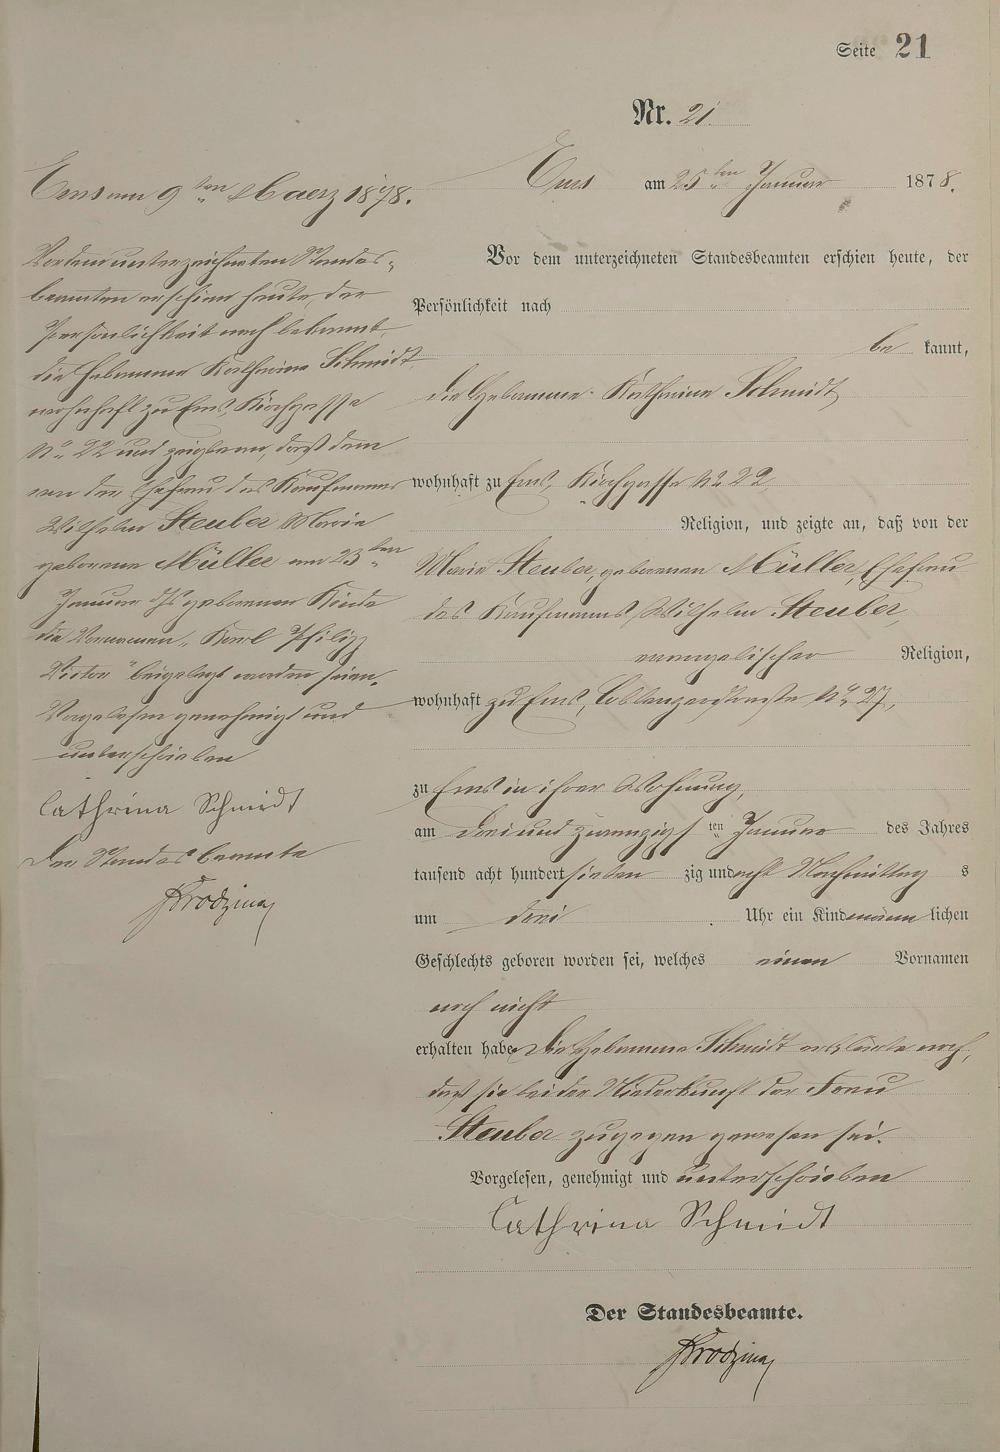 Seite 21
Nr. 21.
Ems am 25ten Januar 1878.
Vor dem unterzeichneten Standesbeamten erschien heute, der
Persönlichkeit nach
be kannt,
die Hebamme Katharina Schmidt
wohnhaft zu Ems, Kirchgasse No 22,
Religion, und zeigte an, daß von der
Marie Steuber, geborenen Müller, Ehefrau
des Kaufmanns Wilhelm Steuber,
evangelischer Religion,
wohnhaft zu Ems, Coblenzerstraße No 27,
zu Ems in ihrer Wohnung,
am drei und zwanzigsten Januar des Jahres
tausend acht hundert sieben zig und acht Nachmittag s
um drei Uhr ein Kind männ lichen
Geschlechts geboren worden sei, welches einen Vornamen
noch nicht
erhalten habe. Die Hebamme Schmidt erklärte noch,
daß sie bei der Niederkunft der Frau
Steuber zugegen gewesen sei.
Vorgelesen, genehmigt und unterschrieben
Cathrina Schmidt
Der Standesbeamte.
Ems am 9ten Maerz 1878.
Vor dem unterzeichneten Standes-
beamten erschien heute, der
Persönlichkeit nach bekannt,
die Hebamme Katharina Schmidt
wohnhaft zu Ems, Kirchgasse
No 22 und zeigte an, daß dem
von der Ehefrau des Kaufmanns
Wilhelm Steuber Marie
geborene Müller am 23ten
Januar ds Js geborenen Kinde
die Vornamen „Karl Philipp
Victor" beigelegt worden seien.
Vorgelesen genehmigt und
unterschrieben
Cathrina Schmidt
Der Standesbeamte